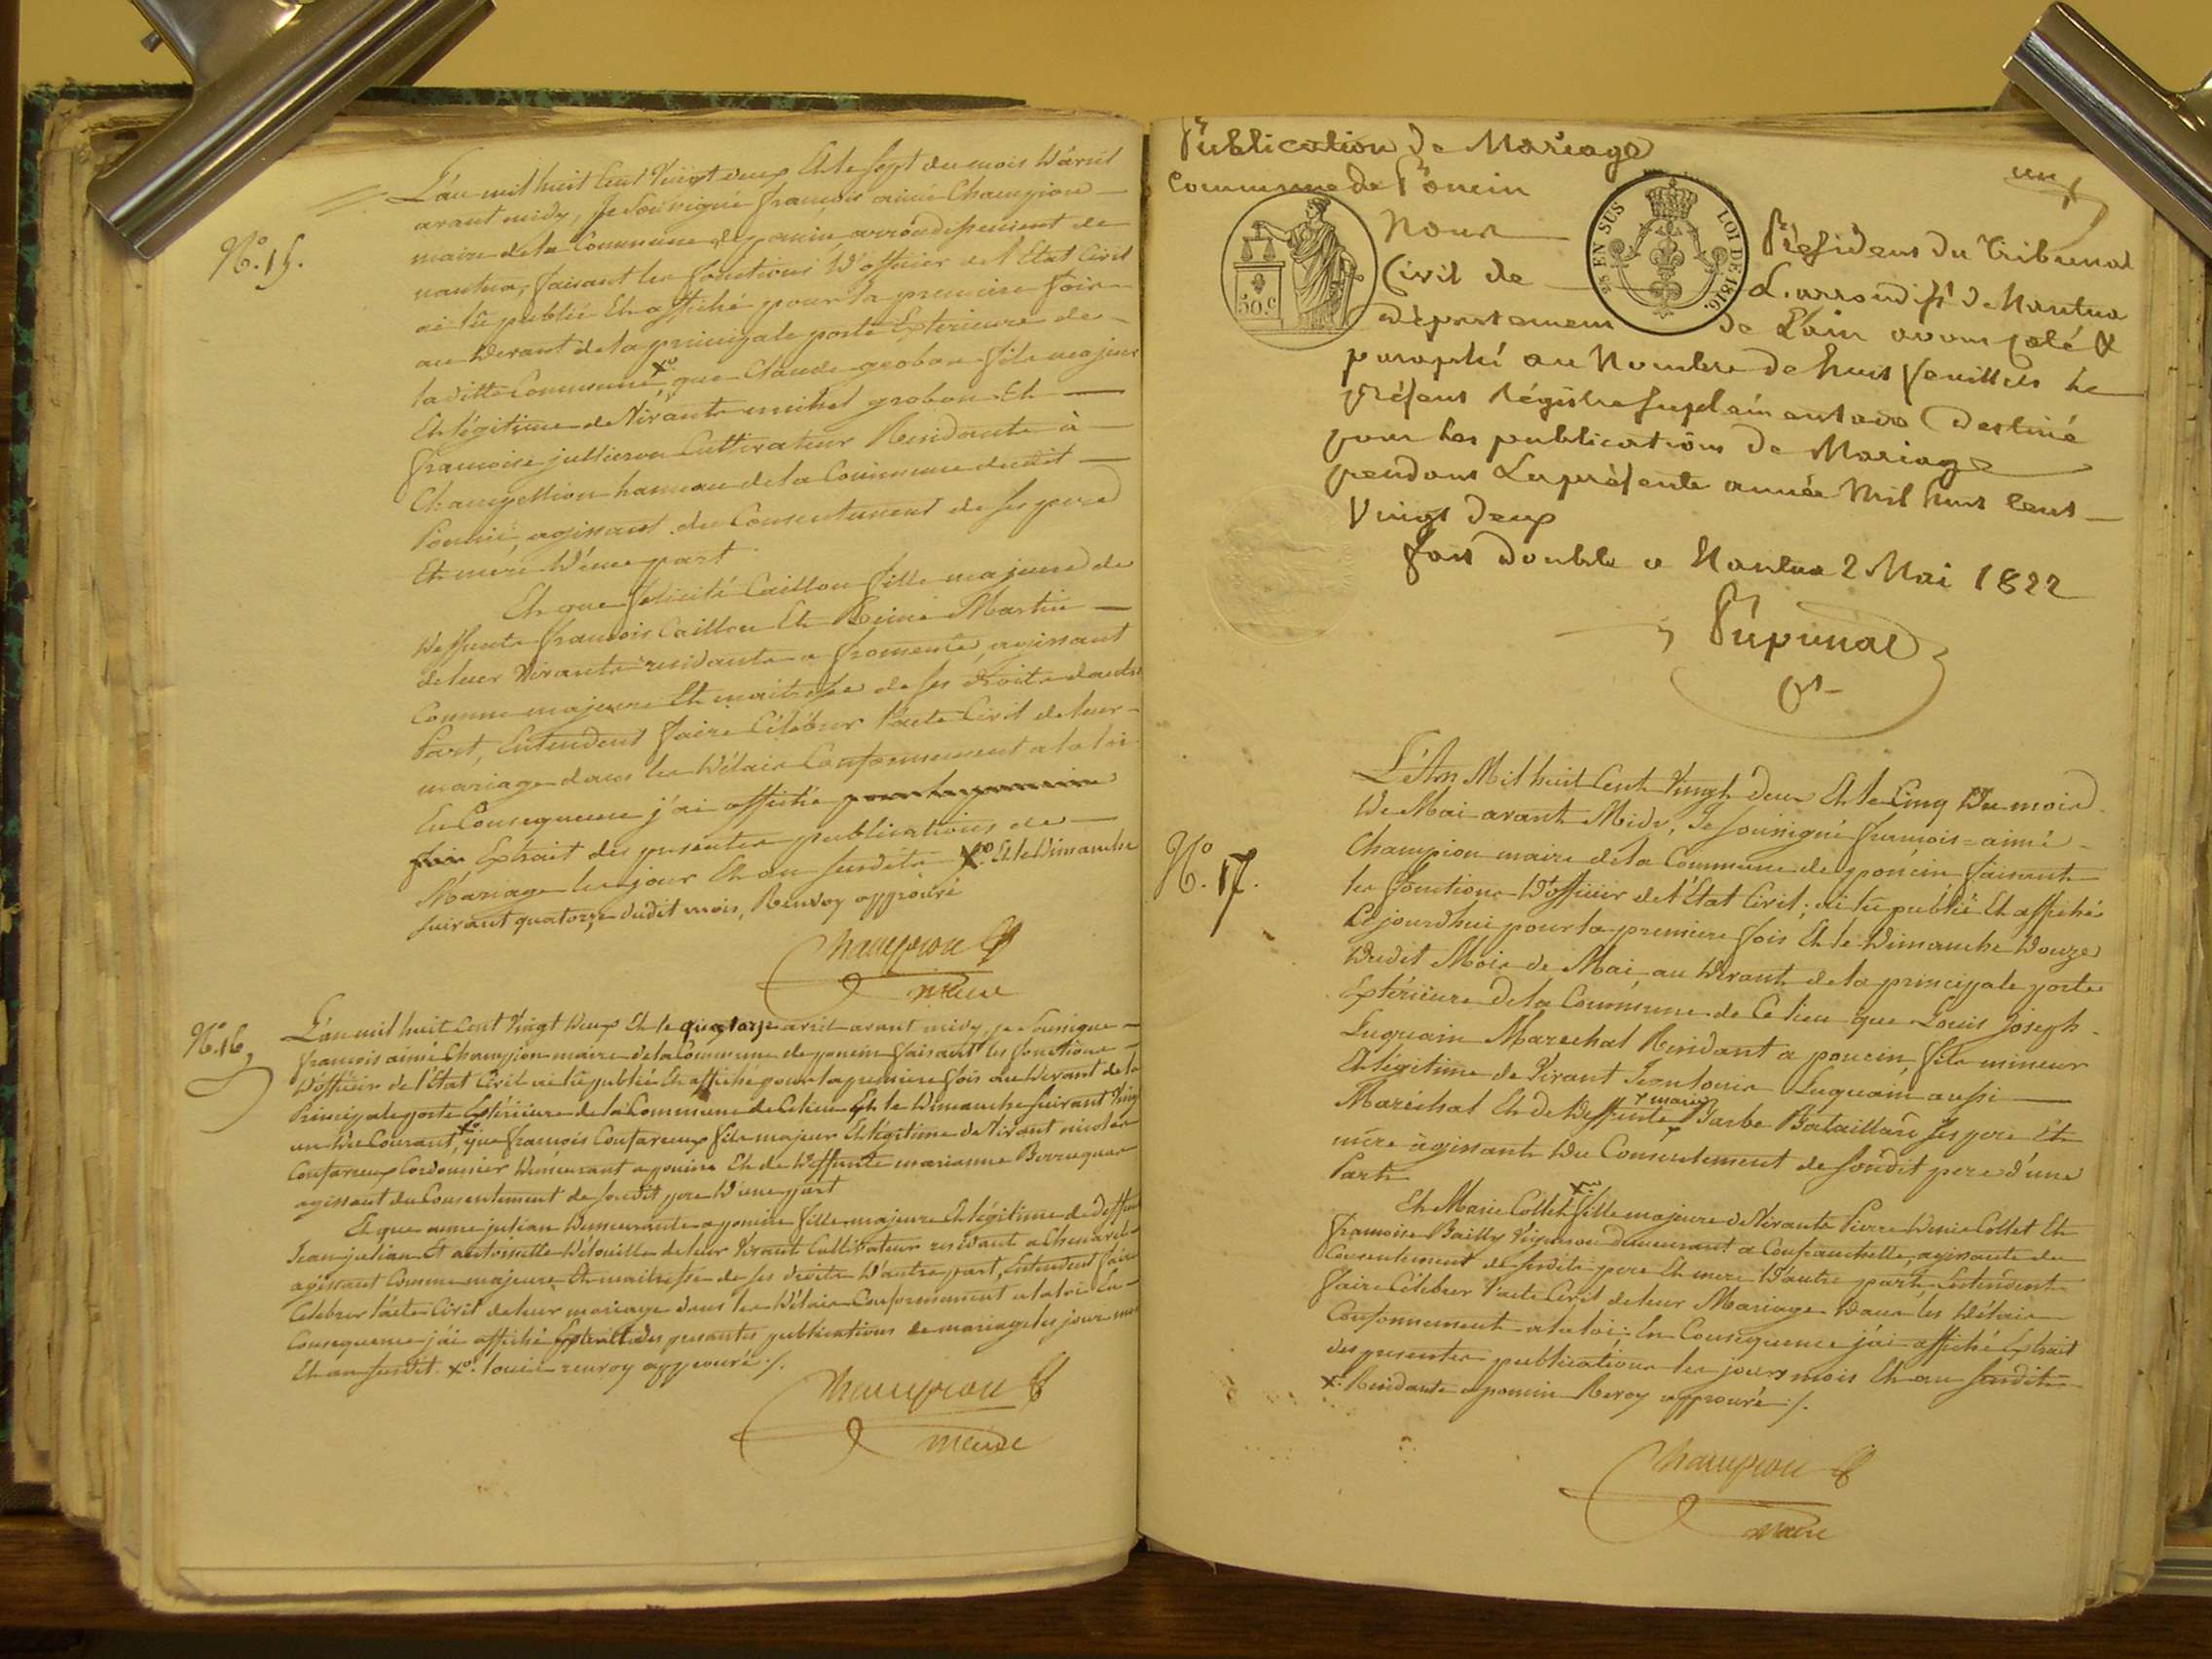 N.º 15.
L'an mil huit Cent Vingt deux Et le Sept du mois D'avril
avant midy, Je Soussigné françois aimé Champion
maire de la Commune de poncin arrondissement de
nantua, faisant les fonctions D'officier de l'Etat Civil
ai lû publié Et affiché pour la premiere fois
au Devant de la principale porte Exterieure de
la ditte Commune X.º que Claude grobon fils majeur
Et légitime de Vivants michel grobon Et
françoise jullieron Cultivateur Residants à
Champellion hameau de la Commune dudit
Poncin, agissant du Consentement de ses pere
Et mere D'une part
Et que felicité Caillon fille majeure de
Deffunts françois Caillon Et Reine Martin
de leur Vivants residants a fromente, agissant
Comme majeure Et maitresse de ses droits d'autre
Part, Entendent faire Célébrer l'acte Civil de leur
mariage dans les Délais Conformement a la loi
En Consequence j'ai affiché pour la premiere
fois Extrait des presentes publications de
Mariage les jour Et an Susdits X.º Et le Dimanche
suivant quatorze dudit mois, Renvoy approuvé
Champion
maire
N.º 16,
L'an mil huit Cent Vingt Deux Et le quatorze avril avant midy, je Soussigné
françois aimé Champion maire de la Commune de poncin faisant les fonctions
D'officier de l'Etat Civil ai lû publié Et affiché pour la premiere fois au Devant de la
Principale porte Extérieure de la Commune de Ce lieu Et le Dimanche suivant Vingt
un Du Courant, X.º que françois Confareux fils majeur Et légitime de Vivant nicolas
Confareux Cordonnier Demeurant a poncin Et de Deffunte marianne
agissant du Consentement de Son dit pere D'une part
Et que anne julian Demeurante a poncin fille majeure Et légitime de deffunt
Jean julian Et antoinette de leur Vivant Cultivateur residant a
agissant Comme majeure Et maitresse de ses droits D'autre part, Entendent faire
Celebrer l'acte Civil de leur mariage dans les Délais Conformement a la loi En
Consequence j'ai affiché Extrait des presentes publications de mariage les jour mois
Et an Susdit. X.º renvoy approuvé /.
Champion
maire
Publication de Mariage
Commune de Poncin
un
50.C
25 EN SUS LOI DE 1816.
Nous Président du Tribunal
Civil de L'arrondisst de Nantua
département de L'ain avons coté &
paraphé au Nombre de huit feuillets le
présent régistre suplémentaire Destiné
pour les publications de Mariage
pendant La présente année Mil huit Cent
Vingt Deux
fait double a Nantua 2 Mai 1822
N.º 17.
L'An Mil huit Cent Vingt Deux Et le Cinq Du mois
De Mai avant Midy, Je Soussigné françois=aimé
Champion maire de la Commune de poncin faisant
les fonctions D'officier de l'Etat Civil; ai lû publié Et affiché
Cejourdhui pour la premiere fois Et le Dimanche Douze
Dudit Mois de Mai, au Devant de la principale porte
Extérieure de la Commune de Ce lieu que Louis Joseph
Luquain Marechal Residant a poncin, fils mineur
Et légitime de Vivant Jean louis Luquain aussi
Maréchal Et de Deffunte X marie Barbe Bataillard Ses pere Et
mére agissant Du Consentement de Son dit pere d'une
Part
Et Marie Collet X.º fille majeure de Vivants Pierre Denis Collet Et
françoise Bailly Vigneron demeurant a Confranchette, agissante du
Consentement de Ses dits pere Et mere D'autre part Entendent
faire Célébrer l'acte Civil de leur Mariage Dans les Délais
Conformement a la loi: En Consequence j'ai affiché Extrait
des presentes publications les jours mois Et an Susdits
X.º Residante a poncin Revoy approuvé /.
Champion
maire